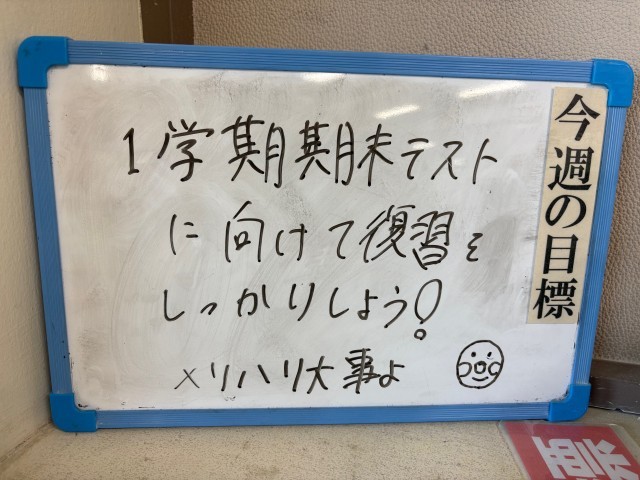 今週の目標
1学期期末テスト
に向けて復習を
しっかりしよう!
メリハリ大事よ